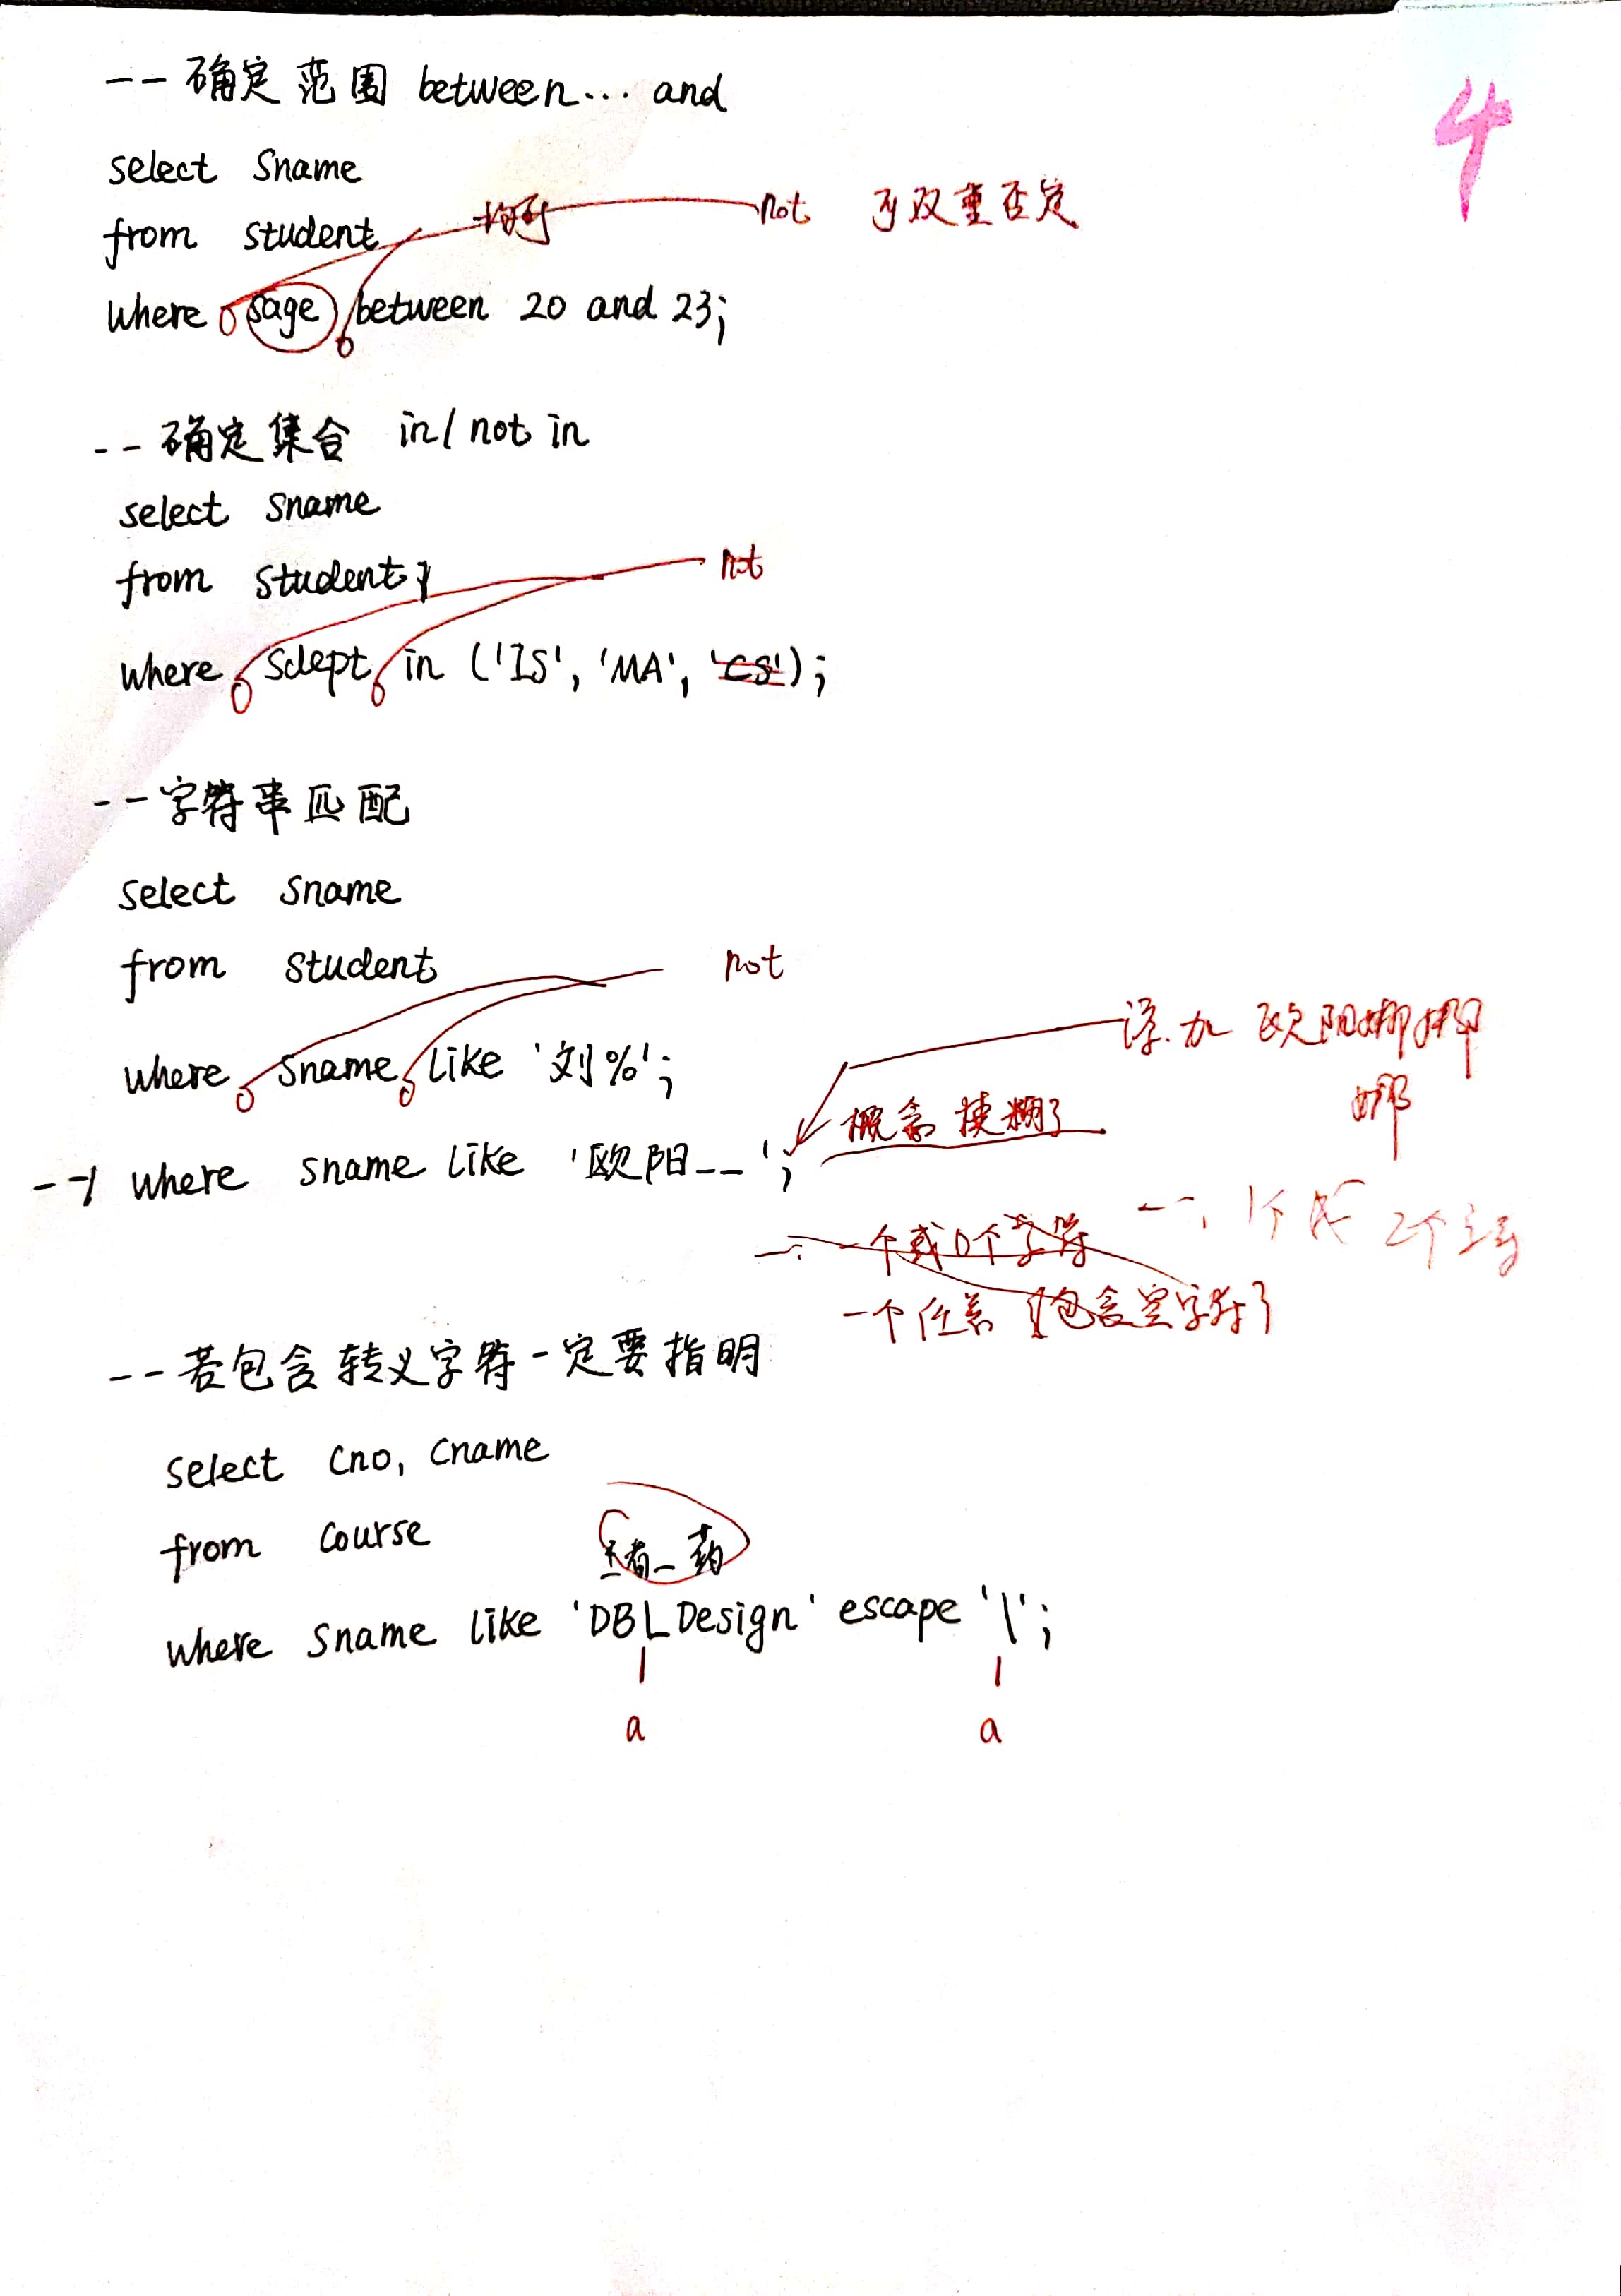 -- 确定范围 between... and
4
select Sname
from student
not 可双重否定
where sage between 20 and 23;
-- 确定集合 in / not in
select sname
from student
not
where Sdept in ('IS', 'MA', 'CS');
-- 字符串匹配
select sname
from student
not
where sname like '刘%';
添加 欧阳娜娜
娜
概念模糊了
-- where sname like '欧阳__';
一个或0个字符
一个任意 包含空字符了
-- 若包含转义字符一定要指明
select cno, cname
from course
where sname like 'DB\_Design' escape '\';
a a